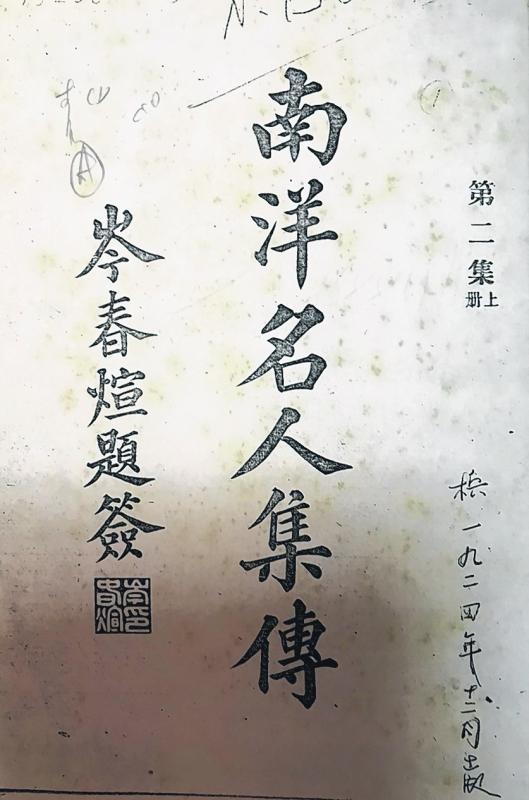 第二集上册
南洋名人集傳
岑春煊題簽
岑春煊印
一九二四年十二月出版